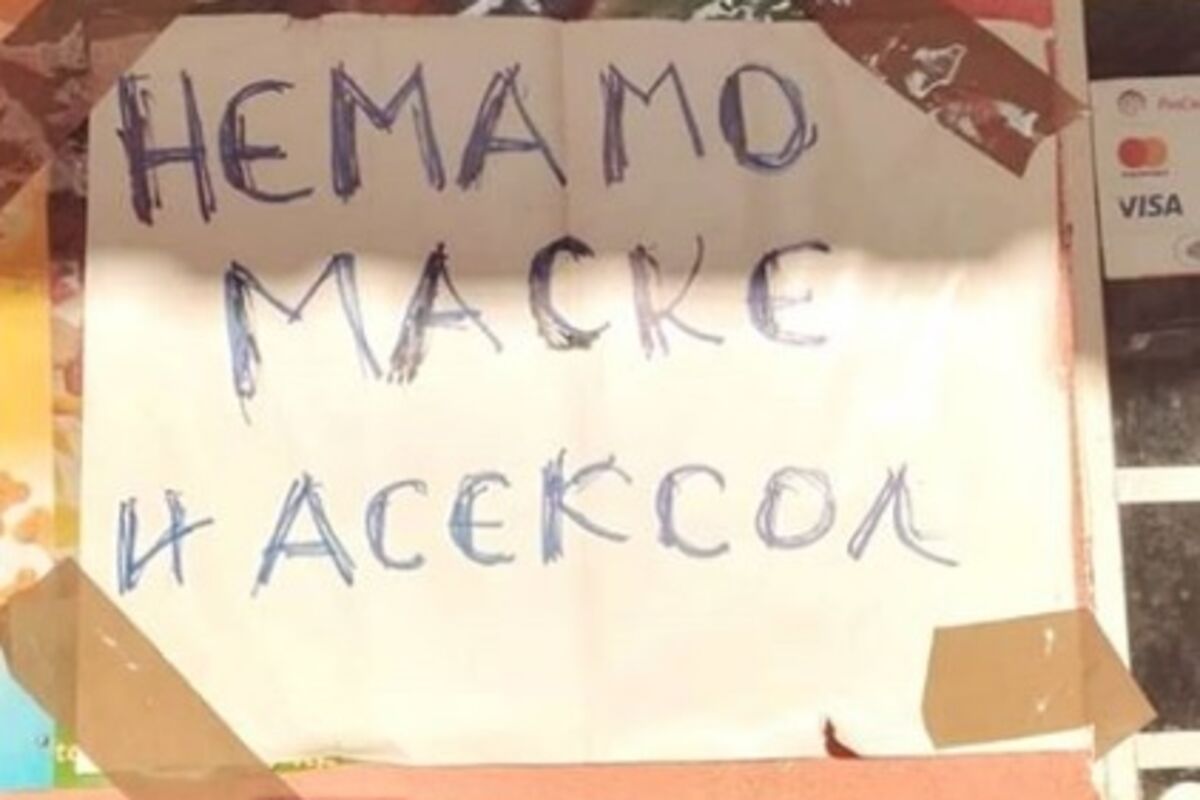 НЕМАМО
МАСКЕ
И АСЕКСОЛ
VISA